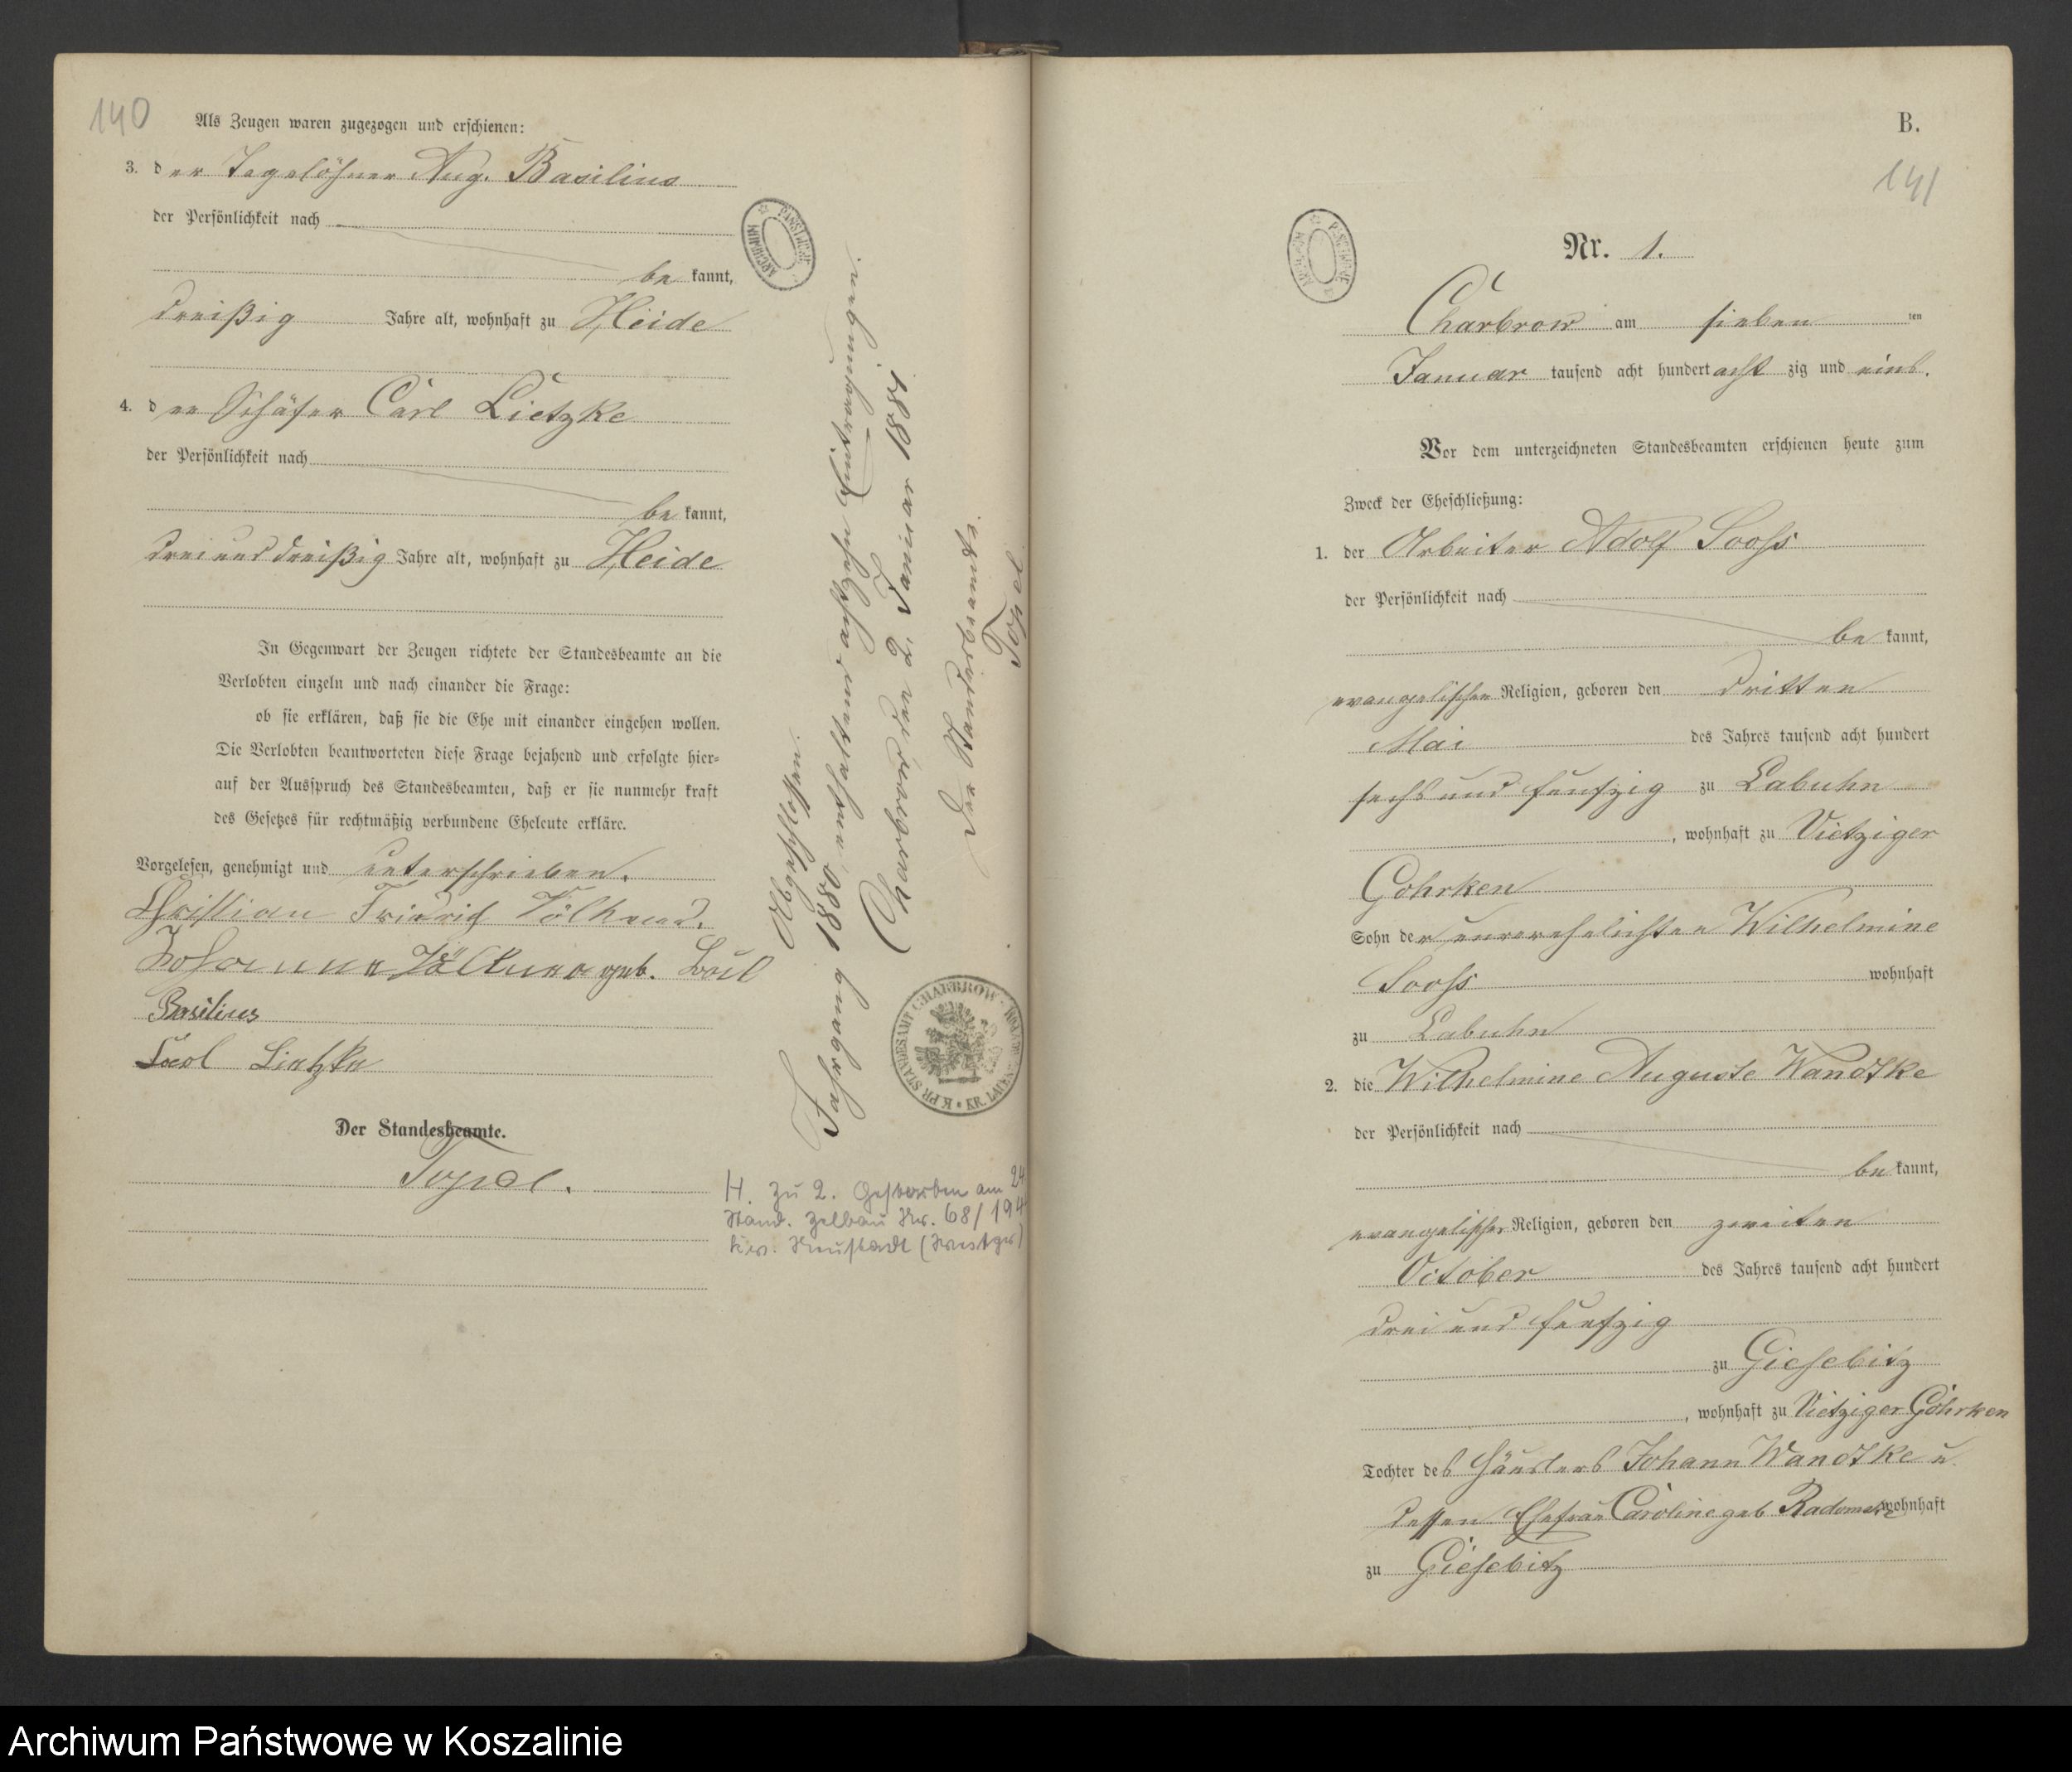 140
Als Zeugen waren zugezogen und erschienen:
3. der Tagelöhner Aug. Basilius
der Persönlichkeit nach
be kannt,
dreißig Jahre alt, wohnhaft zu Heide
4. der Schäfer Carl Lietzke
der Persönlichkeit nach
be kannt,
drei und dreißig Jahre alt, wohnhaft zu Heide
In Gegenwart der Zeugen richtete der Standesbeamte an die
Verlobten einzeln und nach einander die Frage:
ob sie erklären, daß sie die Ehe mit einander eingehen wollen.
Die Verlobten beantworteten diese Frage bejahend und erfolgte hier-
auf der Ausspruch des Standesbeamten, daß er sie nunmehr kraft
des Gesetzes für rechtmäßig verbundene Eheleute erkläre.
Vorgelesen, genehmigt und unterschrieben.
Christian Friedrich
geb.
Basilius
Carl Lietzke
Der Standesbeamte.
Topel.
Abgeschlossen.
Jahrgang 1880, enthaltend achtzehn Eintragungen.
Charbrow den 2. Januar 1881
Der Standesbeamte.
Topel
PAŃSTWOWE ARCHIWUM
K. PR. STANDESAMT CHARBROW
H. zu 2. Gestorben am 24
Stand. Zelbau Nr. 68/194
Krs. Neustadt (Westpr)
B.
141
Nr. 1.
Charbrow am sieben ten
Januar tausend acht hundert acht zig und eins.
Vor dem unterzeichneten Standesbeamten erschienen heute zum
Zweck der Eheschließung:
1. der Arbeiter Adolf Sooss
der Persönlichkeit nach
be kannt,
evangelischer Religion, geboren den dritten
Mai des Jahres tausend acht hundert
sechs und funfzig zu Labuhn
, wohnhaft zu Vietziger
Gohrken
Sohn der unverehelichten Wilhelmine
Sooss wohnhaft
zu Labuhn
2. die Wilhelmine Auguste Wandtke
der Persönlichkeit nach
be kannt,
evangelischer Religion, geboren den zweiten
October des Jahres tausend acht hundert
drei und funfzig
zu Giesebitz
, wohnhaft zu Vietziger Göhrken
Tochter des Häuslers Johann Wandtke u.
dessen Ehefrau Caroline geb Radomske wohnhaft
zu Giesebitz
Archiwum Państwowe w Koszalinie